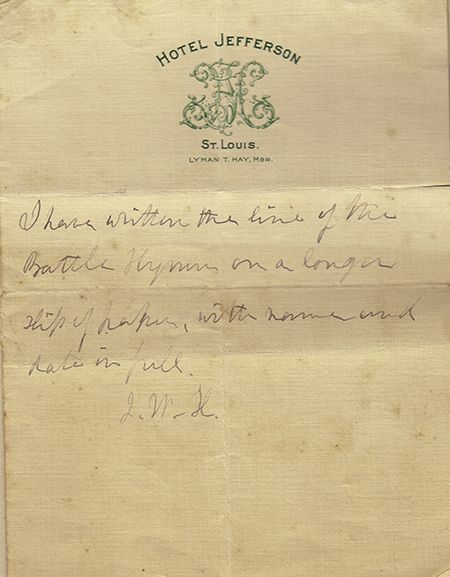 HOTEL JEFFERSON
ST. LOUIS.
LYMAN T. HAY, MGR.
I have written the line of the
Battle Hymn on a longer
slip of paper, with name and
date in full.
J. W. H.